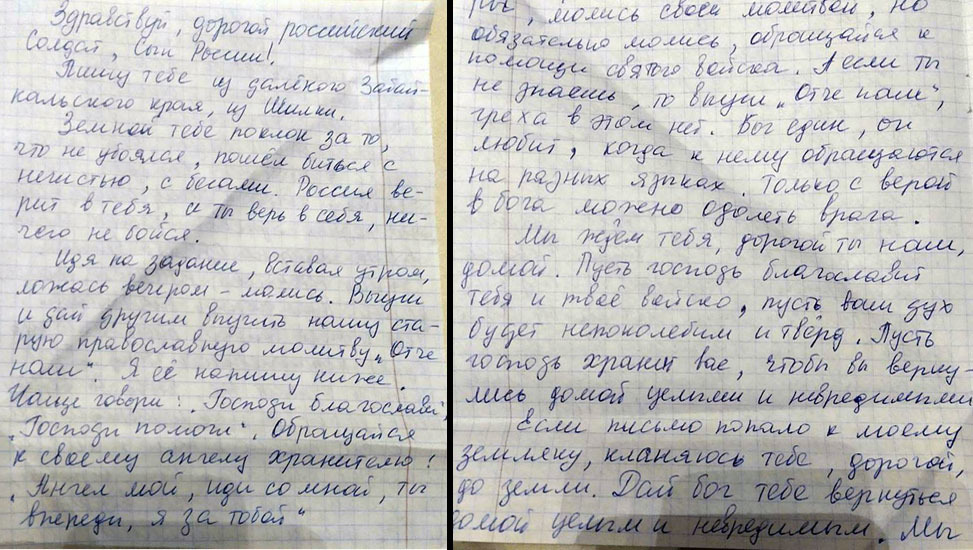 Здравствуй, дорогой российский
солдат, Сын России!
Пишу тебе из далёкого Забай-
кальского края, из Шилки.
Земной тебе поклон за то,
что не убоялся, пошёл биться с
нечистью, с бесами. Россия ве-
рит в тебя, и ты верь в себя, ни-
чего не бойся.
Идя на задание, вставая утром,
ложась вечером - молись. Выучи
и дай другим выучить нашу ста-
рую православную молитву „Отче
наш". Я её напишу ниже.
Чаще говори: „Господи благослави",
„Господи помоги". Обращайся
к своему ангелу хранителю!
„Ангел мой, иди со мной, ты
впереди, я за тобой"
молись своей молитвой, но
обязательно молись, обращайся к
помощи святого войска. А если ты
не знаешь, то выучи „Отче наш",
греха в этом нет. Бог един, он
любит, когда к нему обращаются
на разных языках. Только с верой
в бога можно одолеть врага.
Мы ждём тебя, дорогой ты наш,
домой. Пусть господь благославит
тебя и твоё войско, пусть ваш дух
будет непоколебим и твёрд. Пусть
господь хранит вас, чтобы вы верну-
лись домой целыми и невредимыми
Если письмо попало к моему
земляку, кланяюсь тебе, дорогой,
до земли. Дай бог тебе вернуться
домой целым и невредимым. Мы